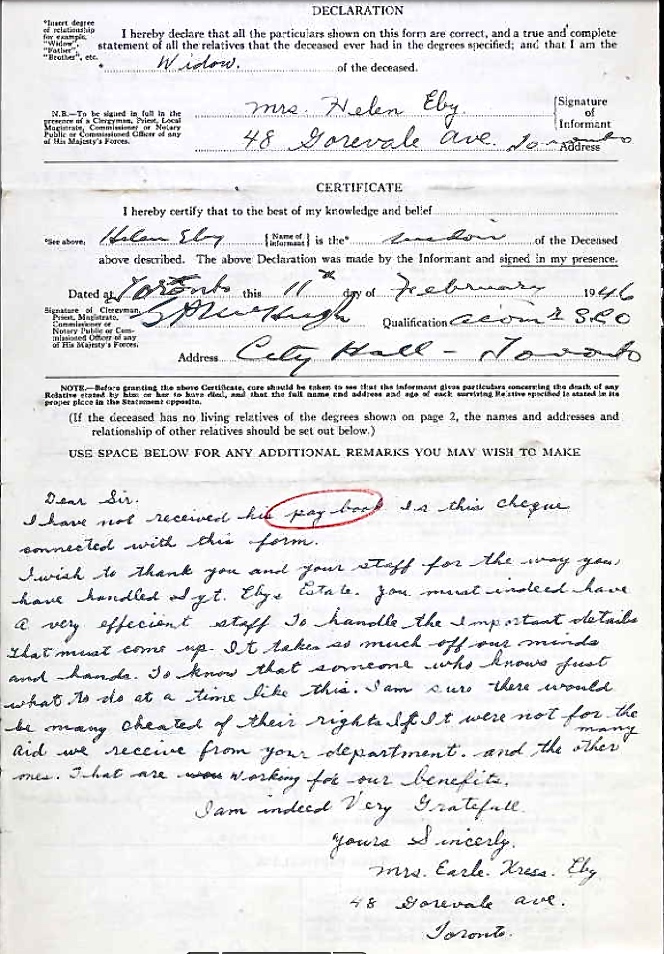 DECLARATION
*Insert degree
of relationship
for example,
"Widow",
"Father",
"Brother", etc.
I hereby declare that all the particulars shown on this form are correct, and a true and complete
statement of all the relatives that the deceased ever had in the degrees specified; and that I am the
* Widow. of the deceased.
N.B.—To be signed in full in the
presence of a Clergyman, Priest, Local
Magistrate, Commissioner or Notary
Public or Commissioned Officer of any
of His Majesty's Forces.
Mrs. Helen Eby. {Signature of Informant
48 Gorevale Ave. Toronto Address
CERTIFICATE
I hereby certify that to the best of my knowledge and belief
*See above. Helen Eby {Name of Informant} is the* widow of the Deceased
above described. The above Declaration was made by the Informant and signed in my presence.
Dated at Toronto this 11th day of February 1946
Signature of Clergyman,
Priest, Magistrate,
Commissioner or
Notary Public or Com-
missioned Officer of any
of His Majesty's Forces.
Qualification
Address City Hall - Toronto
NOTE.—Before granting the above Certificate, care should be taken to see that the informant gives particulars concerning the death of any
Relative stated by him or her to have died, and that the full name and address and age of each surviving Relative specified is stated in its
proper place in the Statement opposite.
(If the deceased has no living relatives of the degrees shown on page 2, the names and addresses and
relationship of other relatives should be set out below.)
USE SPACE BELOW FOR ANY ADDITIONAL REMARKS YOU MAY WISH TO MAKE
Dear Sir.
I have not received his pay book Is this cheque
connected with this form.
I wish to thank you and your staff for the way you
have handled Sgt. Ebys Estate. you must indeed have
a very effecient staff To handle the Important details
That must come up. It takes so much off our minds
and hands. To know that someone who knows just
what to do at a time like this. I am sure there would
be many cheated of their rights If It were not for the
aid we receive from your department. and the many other
ones. That are working for our benefits.
I am indeed Very Gratefull.
Yours Sincerly.
Mrs. Earle. Kress. Eby.
48 Gorevale Ave.
Toronto.